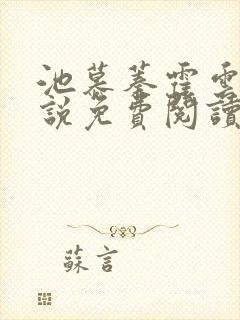 池慕蓁霆雲
說免費閱讀
蘇言